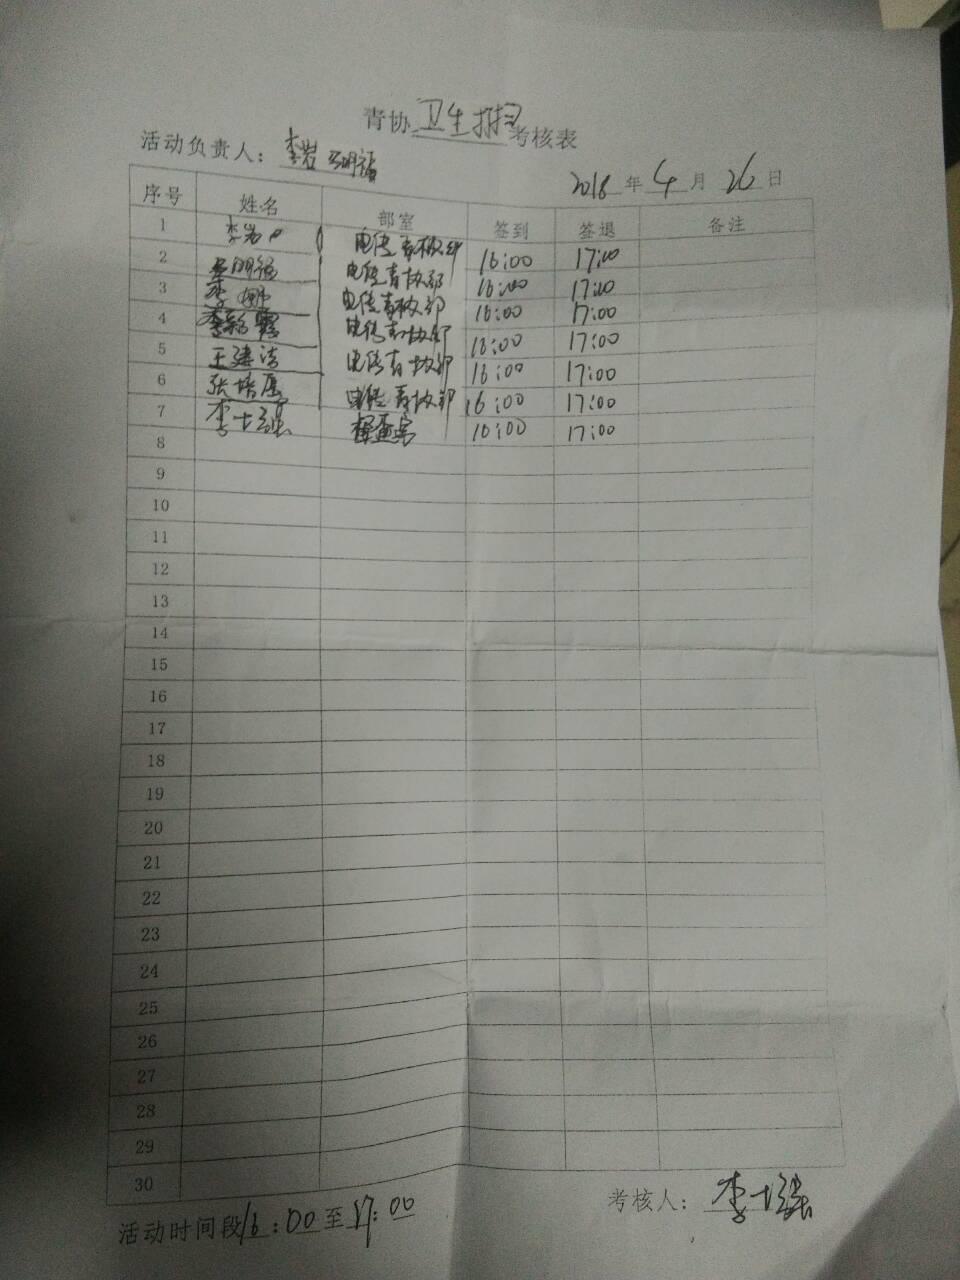 青协卫生打扫考核表
活动负责人：李岩
2018年4月26日
序号 姓名 部室 签到 签退 备注
1 李岩 电信青协部 16:00 17:00
2 电信青协部 16:00 17:00
3 李娜 电信青协部 16:00 17:00
4 电信青协部 16:00 17:00
5 王建洁 电信青协部 16:00 17:00
6 张培 电信青协部 16:00 17:00
7 李士强 16:00 17:00
8
9
10
11
12
13
14
15
16
17
18
19
20
21
22
23
24
25
26
27
28
29
30
考核人：李士强
活动时间段16:00至17:00